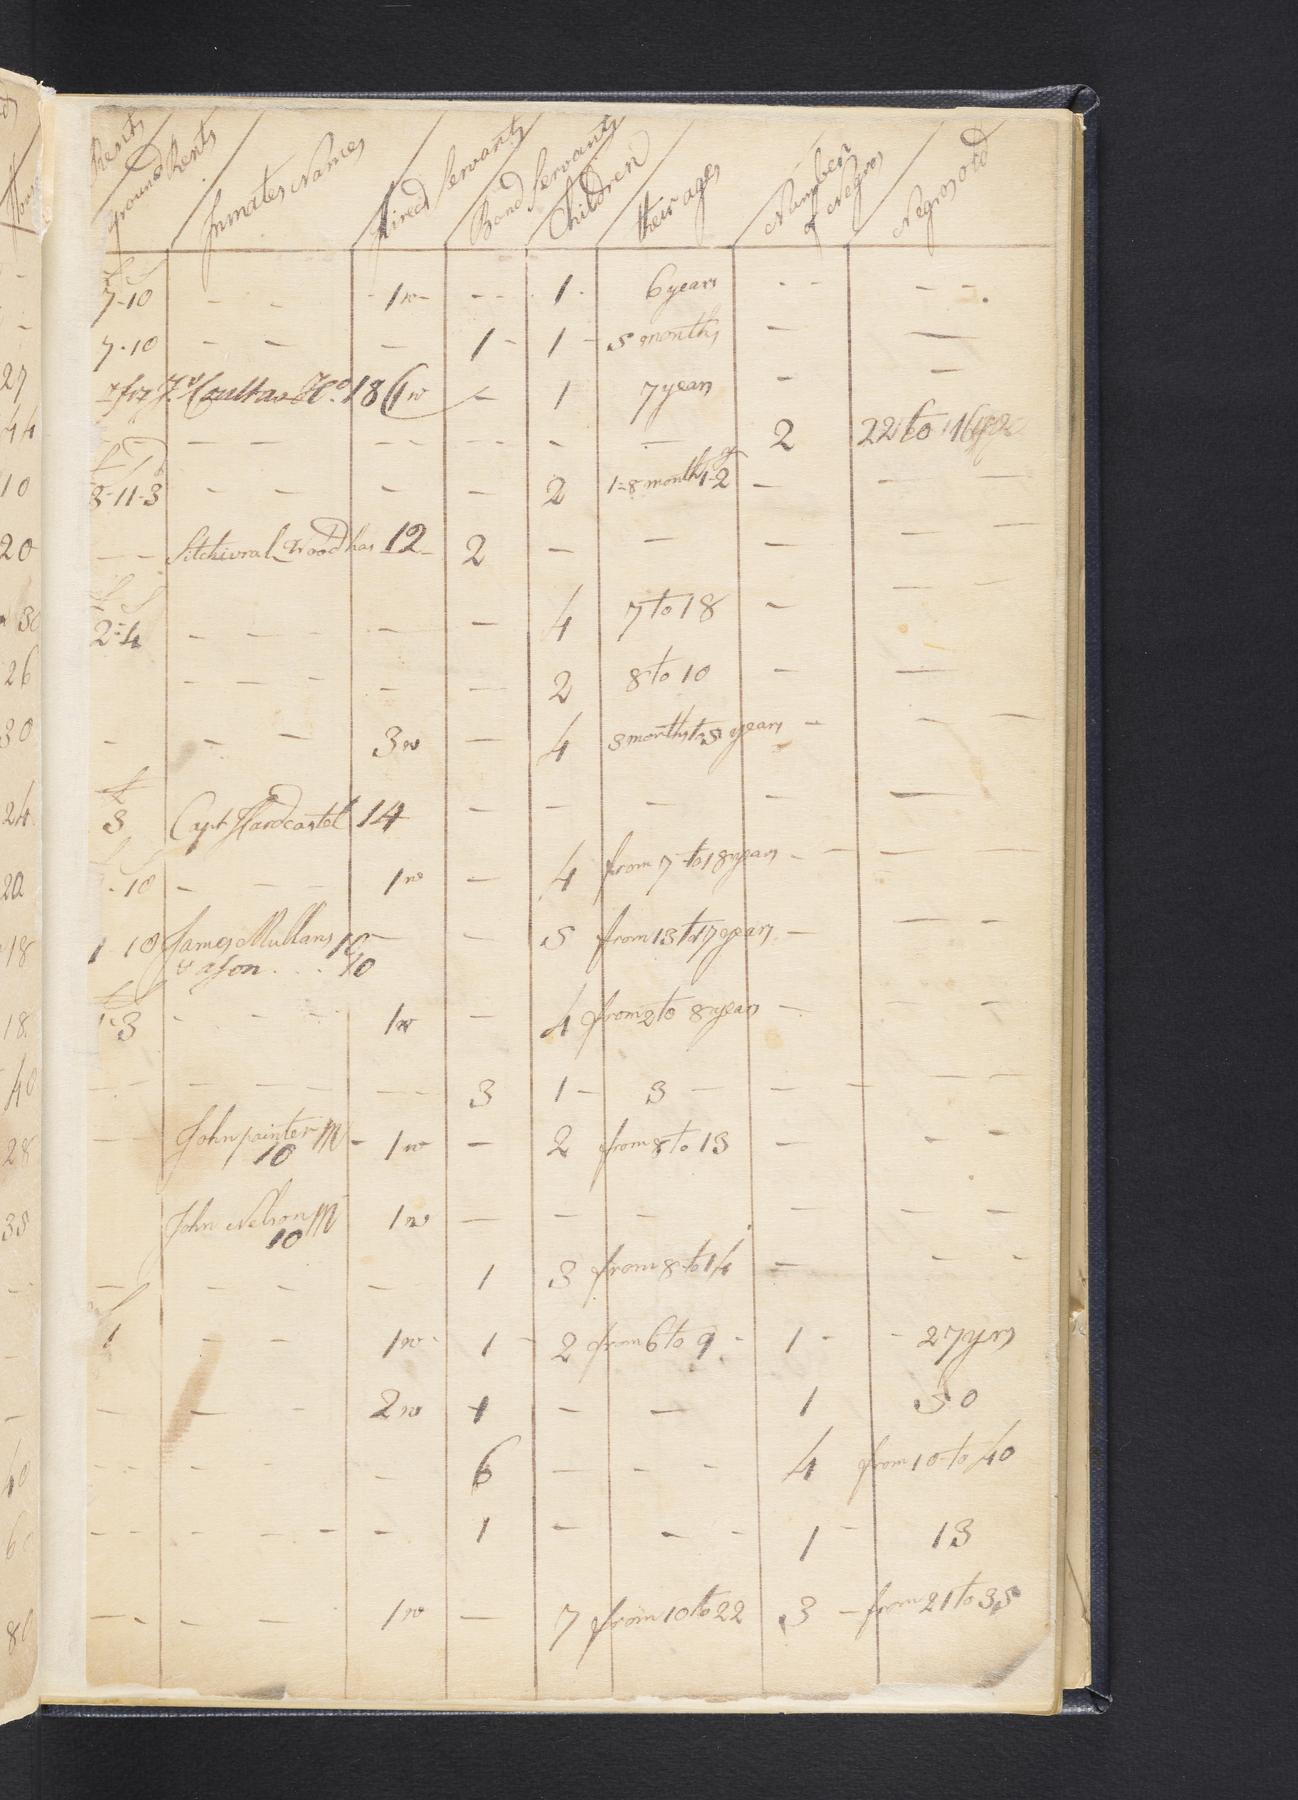 Rents
ground Rents / Inmates Names / Hired Servants / Bond Servants / Children / their ages / Number of Negros / Negros old
£ S
7-10 - - - 1w - - - 1 - 6 years - - - -
7-10 - - - 1 - 1 - 5 months - -
18 1w - 1 7 year - -
- - - - - - - - - 2 22 to 16
3-11-3 - - - - 2 1=8 months 1-2 - - -
- - Wood has 12 - 2 - - - - -
£ S
2=4 - - - - - 4 7 to 18 - - -
- - - - - 2 8 to 10 - -
- - - 3w - 4 3 months to 5 years - - -
£
3 Capt Hardcastel 14 - - - - - -
£ S
-10 - - - 1w - 4 from 7 to 18 years - - - -
1 10 James Mullans 16 - - 5 from 13 to 17 years - - -
& a son . . . . 10
1-3 - - - 1w - 4 from 2 to 8 years - - -
- - - - - - - 3 1 - 3 - - - - -
- - John painter M - 1w - 2 from 8 to 13 - - -
10
John Nelson M 1w - - - - - -
10
- - - - - 1 3 from 8 to 14 - - -
1 - - 1w - 1 - 2 from 6 to 9 - 1 - - 27 yrs
- - - 2w 1 - - 1 50
- - - - - 6 - - - 4 from 10 to 40
- - - - - - 1 - - - 1 - 13
- - - - 1w - 7 from 10 to 22 3 - from 21 to 35
27
44
10
20
30
26
30
24
20
18
18
40
28
35
40